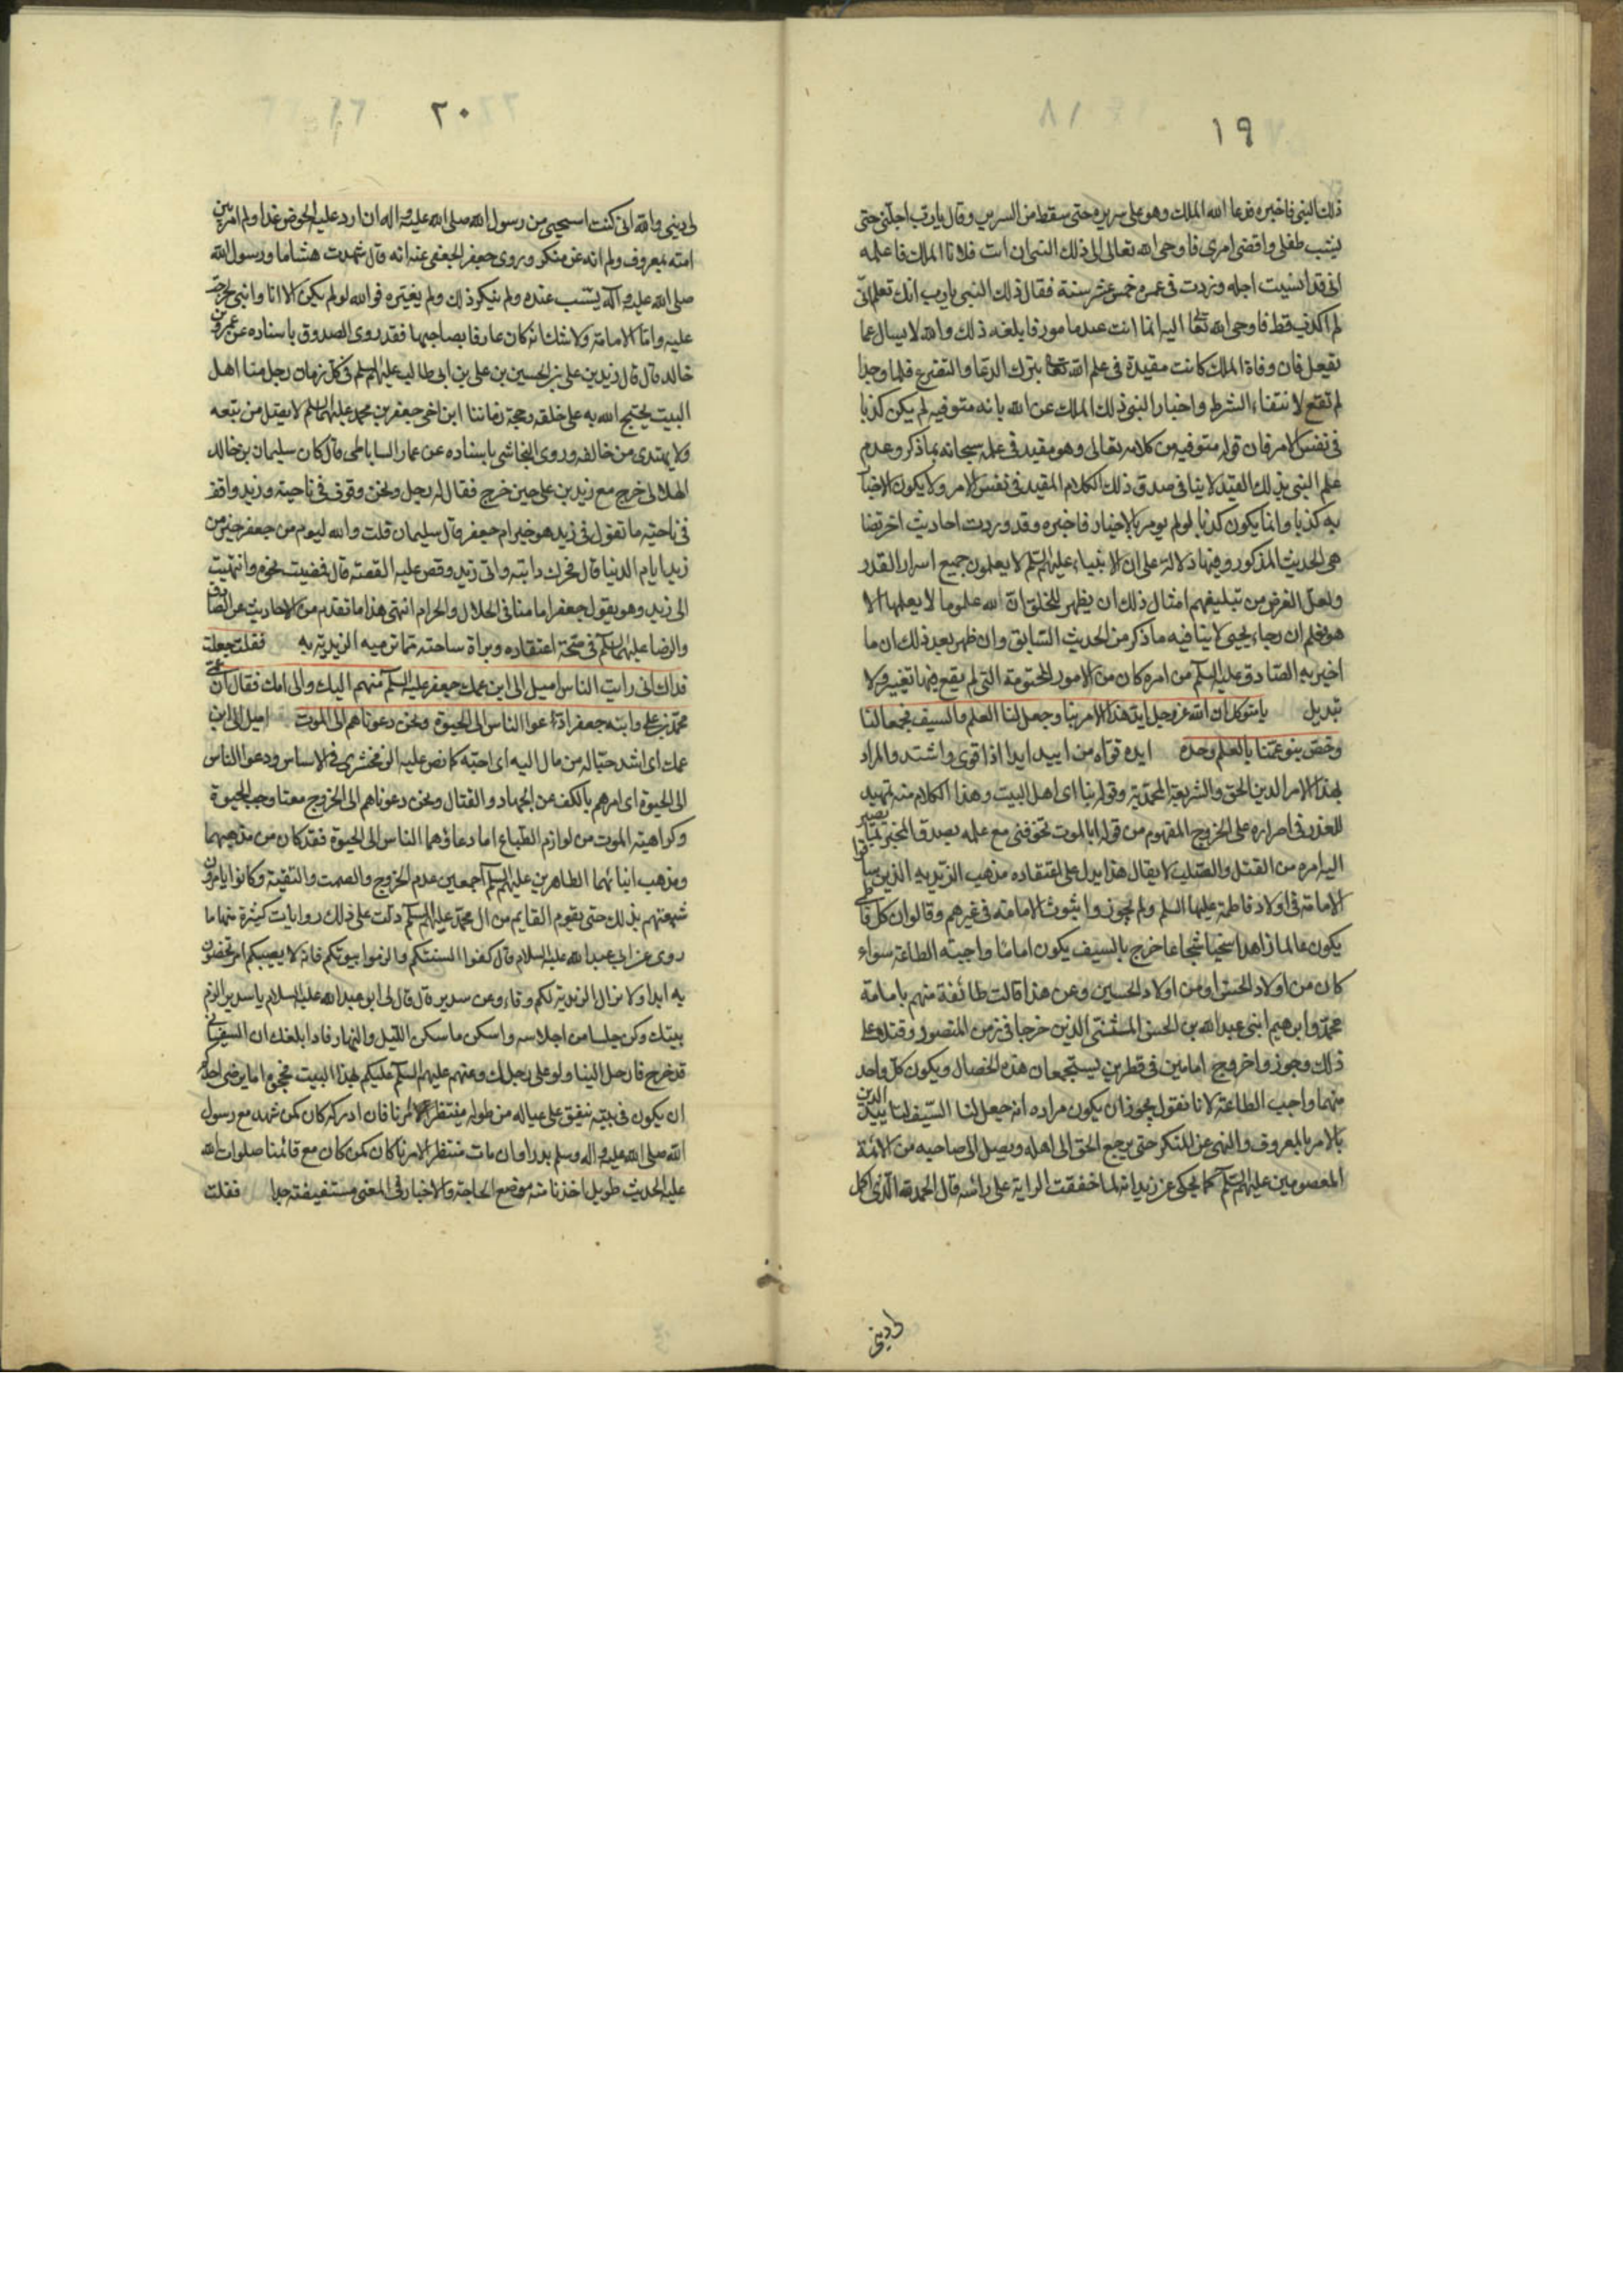 ١٩
ذلك النبى فاخبره فدعا الله الملك وهو على سريره حتى سقط من السرير وقال يا رب اجلنى حتى
يشب طفلى واقضى امرى فاوحى الله تعالى الى ذلك النبى ان ائت فلانا الملك فاعلمه
انى قد انسيت اجله وزدت فى عمره خمس عشر سنة فقال ذلك النبى يا رب انك تعلم انى
لم اكذب قط فاوحى الله تعالى اليه انما انت عبد مامور فابلغه ذلك والله لا يسال عما
يفعل فان وفاة الملك كانت مقيدة فى علم الله تعالى بترك الدعا والتضرع فلما وجدا
لم تقع لانتفاء الشرط واخبار النبى ذلك الملك عن الله بانه متوفيه لم يكن كذبا
فى نفس الامر فان قوله متوفيه من كلامه تعالى وهو مقيد فى علمه سبحانه بما ذكر وعدم
علم النبى بذلك القيد لا ينافى صدق ذلك الكلام المقيد فى نفس الامر ولا يكون الاخبار
به كذبا وانما يكون كذبا لو لم يومر بالاخبار فاخبره وقد وردت احاديث اخر تضا
هى الحديث المذكور وفيها دلالة على ان الانبياء عليهم السلم لا يعلمون جميع اسرار القدر
ولعل الغرض من تبليغهم امثال ذلك ان يظهر للخلق ان لله علوما لا يعلمها الا
هو فعلم ان رجاء يحيى لا ينافيه ما ذكر من الحديث السابق وان ظهر بعد ذلك ان ما
اخبر به الصادق عليه السلم من امره كان من الامور المحتومة التى لم يقع فيها تغيير ولا
تبديل يا متوكل ان الله عز وجل ايد هذا الامر بنا وجعل لنا العلم والسيف فجمعا لنا
وخص بنو عمنا بالعلم وحده ايده قواه من اييد ايدا اذا قوى واشتد والمراد
بهذا الامر الدين الحق والشريعة المحمدية وقوله بنا اى اهل البيت وهذا الكلام منه تمهيد
للعذر فى اصراره على الخروج المفهوم من قوله ابالموت تخوفنى مع علمه بصدق المخبر بما يصير
اليه امره من القتل والصلب لا يقال هذا يدل على اعتقاده مذهب الزيديه الذين ساقوا
الامامة فى اولاد فاطمة عليها السلم ولم يجوزوا ثبوت الامامة فى غيرهم وقالوا ان كل فاطمى
يكون عالما زاهدا سخيا شجاعا خرج بالسيف يكون اماما واجبة الطاعة سواء
كان من اولاد الحسن او من اولاد الحسين وعن هذا قالت طائفة منهم بامامة
محمد وابرهيم ابنى عبد الله بن الحسن المثنى الذين خرجا فى زمن المنصور وقتلا على
ذلك وجوزوا خروج امامين فى قطرين يستجمعان هذه الخصال ويكون كل واحد
منهما واجب الطاعة لانا نقول يجوز ان يكون مراده انه جعل لنا السيف لتاييد الدين
بالامر بالمعروف والنهى عن المنكر حتى يرجع الحق الى اهله ويصل الى صاحبه من الائمة
المعصومين عليهم السلم كما يحكى عن زيد انه لما خفقت الراية على راسه قال الحمد لله الذى اكمل
لى دينى
٢٠
لى دينى والله انى كنت استحيى من رسول الله صلى الله عليه واله ان ارد عليه الحوض غدا ولم امر بين
امته بمعروف ولم انه عن منكر وروى جعفر الجعفى عنه انه قال شهدت هشاما ورسول الله
صلى الله عليه وآله يسب عنده ولم ينكر ذلك ولم يغيره فوالله لو لم يكن الا انا وابنى لخرجت
عليه واما الامامة ولا شك انه كان عارفا بصاحبها فقد روى الصدوق باسناده عن عمرو بن
خالد قال قال زيد بن على بن الحسين بن على بن ابى طالب عليهم السلم فى كل زمان رجل منا اهل
البيت يحتج الله به على خلقه وحجة زماننا ابن اخى جعفر بن محمد عليهما السلم لا يضل من تبعه
ولا يهتدى من خالفه وروى النجاشى باسناده عن عمار الساباطى قال كان سليمان بن خالد
الهلالى خرج مع زيد بن على حين خرج فقال له رجل ونحن وقوف فى ناحية وزيد واقف
فى ناحية ما تقول فى زيد هو خير ام جعفر قال سليمان قلت والله ليوم من جعفر خير من
زيد ايام الدنيا قال فحرك دابته واتى زيد وقص عليه القصة قال فمضيت نحوه وانتهيت
الى زيد وهو يقول جعفر امامنا فى الحلال والحرام انتهى هذا ما تقدم من الاحاديث عن الصادق
والرضا عليهما السلم فى صحة اعتقاده وبراة ساحته مما ترميه الزيدية به فقلت جعلت
فداك انى رايت الناس اميل الى ابن عمك جعفر عليه السلم منهم اليك والى ابيك فقال ان عمى
محمد بن على وابنه جعفرا دعوا الناس الى الحيوة ونحن دعوناهم الى الموت اميل الى ابن
عمك اى اشد حبا له من مال اليه اى احبه كما نص عليه الزمخشرى فى الاساس ودعوا الناس
الى الحيوة اى امرهم بالكف عن الجهاد والقتال ونحن دعوناهم الى الخروج معنا وحب الحيوة
وكراهية الموت من لوازم الطباع اما دعاؤهما الناس الى الحيوة فقد كان من مذهبهما
ومذهب ابنائهما الطاهرين عليهم السلم اجمعين عدم الخروج والصمت والتقية وكانوا يامرون
شيعتهم بذلك حتى يقوم القايم من ال محمد عليهم السلم دلت على ذلك روايات كثيرة منها ما
روى عن ابى عبد الله عليه السلام قال كفوا السنتكم والزموا بيوتكم فانه لا يصيبكم امر تخصون
به ابدا ولا تزال الزيدية لكم وقاء وعن سدير قال قال لى ابو عبد الله عليه السلام يا سدير الزم
بيتك وكن حلسا من احلاسه واسكن ما سكن الليل والنهار فاذا بلغك ان السفيانى
قد خرج فارحل الينا ولو على رجلك وعنهم عليهم السلم عليكم بهذا البيت فحجوه اما يرضى احدكم
ان يكون فى بيته ينفق على عياله من طوله ينتظر امرنا فان ادركه كان كمن شهد مع رسول
الله صلى الله عليه واله وسلم بدرا وان مات منتظرا لامرنا كان كمن كان مع قائمنا صلوات الله
عليه الحديث طويل اخذنا منه موضع الحاجة والاخبار فى المعنى مستفيضة جدا فقلت